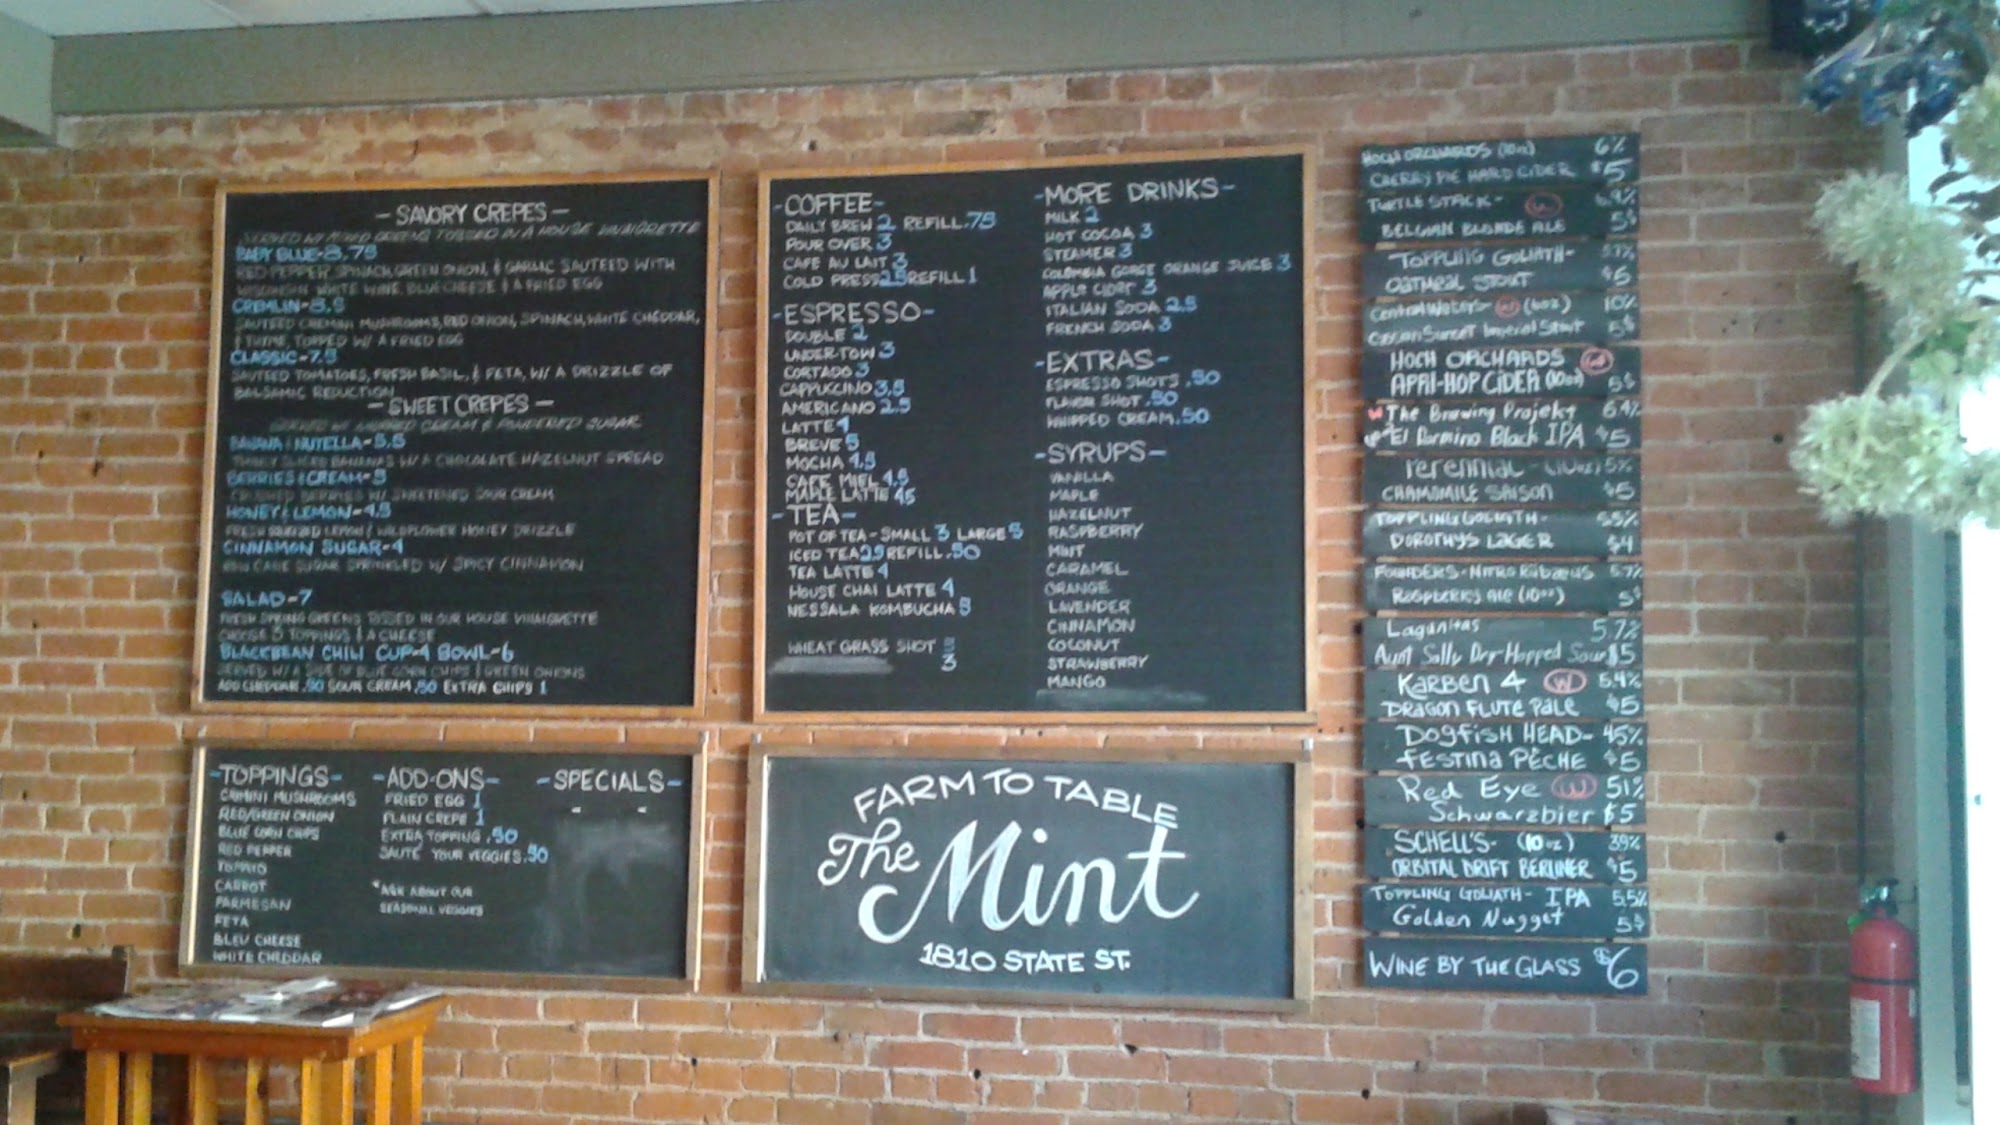 - SAVORY CREPES -
SERVED W/ MIXED GREENS TOSSED IN A HOUSE VINAIGRETTE
BABY BLUE - 8.75
RED PEPPER, SPINACH, GREEN ONION, & GARLIC SAUTEED WITH
WISCONSIN WHITE WINE, BLUE CHEESE & A FRIED EGG
CREMLIN - 8.5
SAUTEED CREMINI MUSHROOMS, RED ONION, SPINACH, WHITE CHEDDAR,
& THYME, TOPPED W/ A FRIED EGG
CLASSIC - 7.5
SAUTEED TOMATOES, FRESH BASIL, & FETA, W/ A DRIZZLE OF
BALSAMIC REDUCTION
- SWEET CREPES -
SERVED W/ WHIPPED CREAM & POWDERED SUGAR
BANANA & NUTELLA - 5.5
THINLY SLICED BANANAS W/ A CHOCOLATE HAZELNUT SPREAD
BERRIES & CREAM - 5
CRUSHED BERRIES W/ SWEETENED SOUR CREAM
HONEY & LEMON - 4.5
FRESH SQUEEZED LEMON & WILDFLOWER HONEY DRIZZLE
CINNAMON SUGAR - 4
RAW CANE SUGAR SPRINKLED W/ SPICY CINNAMON
SALAD - 7
FRESH SPRING GREENS TOSSED IN OUR HOUSE VINAIGRETTE
CHOOSE 3 TOPPINGS & A CHEESE
BLACKBEAN CHILI CUP - 4 BOWL - 6
SERVED W/ A SIDE OF BLUE CORN CHIPS & GREEN ONIONS
ADD CHEDDAR .50 SOUR CREAM .50 EXTRA CHIPS 1
- TOPPINGS -
CRIMINI MUSHROOMS
RED/GREEN ONION
BLUE CORN CHIPS
RED PEPPER
TOMATO
CARROT
PARMESAN
FETA
BLEU CHEESE
WHITE CHEDDAR
- ADD-ONS -
FRIED EGG 1
PLAIN CREPE 1
EXTRA TOPPING .50
SAUTE YOUR VEGGIES .50
*ASK ABOUT OUR
SEASONAL VEGGIES
- SPECIALS -
- COFFEE -
DAILY BREW 2 REFILL .75
POUR OVER 3
CAFE AU LAIT 3
COLD PRESS 2.5 REFILL 1
- ESPRESSO -
DOUBLE 2
UNDER-TOW 3
CORTADO 3
CAPPUCCINO 3.5
AMERICANO 2.5
LATTE 4
BREVE 5
MOCHA 4.5
CAFE MIEL 4.5
MAPLE LATTE 4.5
- TEA -
POT OF TEA - SMALL 3 LARGE 5
ICED TEA 2.5 REFILL .50
TEA LATTE 4
HOUSE CHAI LATTE 4
NESSALA KOMBUCHA 5
WHEAT GRASS SHOT
3
- MORE DRINKS -
MILK 2
HOT COCOA 3
STEAMER 3
COLUMBIA GORGE ORANGE JUICE 3
APPLE CIDER 3
ITALIAN SODA 2.5
FRENCH SODA 3
- EXTRAS -
ESPRESSO SHOTS .50
FLAVOR SHOT .50
WHIPPED CREAM .50
- SYRUPS -
VANILLA
MAPLE
HAZELNUT
RASPBERRY
MINT
CARAMEL
ORANGE
LAVENDER
CINNAMON
COCONUT
STRAWBERRY
MANGO
FARM TO TABLE
The Mint
1810 STATE ST.
HOCH ORCHARDS (10oz) 6%
CHERRY PIE HARD CIDER $5
TURTLE STACK - W
BELGIAN BLONDE ALE 5$
TOPPLING GOLIATH -
OATMEAL STOUT $5
Central Waters - W (6oz) 10%
Cassian Sunset Imperial Stout 5$
HOCH ORCHARDS W
APRI-HOP CIDER (10oz) 5$
W The Brewing Projekt 6.4%
El Dormino Black IPA $5
Perennial - (10oz) 5%
CHAMOMILE SAISON $5
TOPPLING GOLIATH - 5.5%
DOROTHYS LAGER $4
FOUNDERS - NITRO Rübaeus 5.7%
Raspberry Ale (10oz) 5$
Lagunitas 5.7%
Aunt Sally Dry-Hopped Sour $5
Karben 4 W 5.4%
DRAGON FLUTE PALE $5
DOGFISH HEAD - 4.5%
FESTINA PÊCHE $5
Red Eye W 5.1%
Schwarzbier $5
SCHELL'S - (10oz)
ORBITAL DRIFT BERLINER $5
TOPPLING GOLIATH - IPA 5.5%
Golden Nugget 5$
WINE BY THE GLASS $6